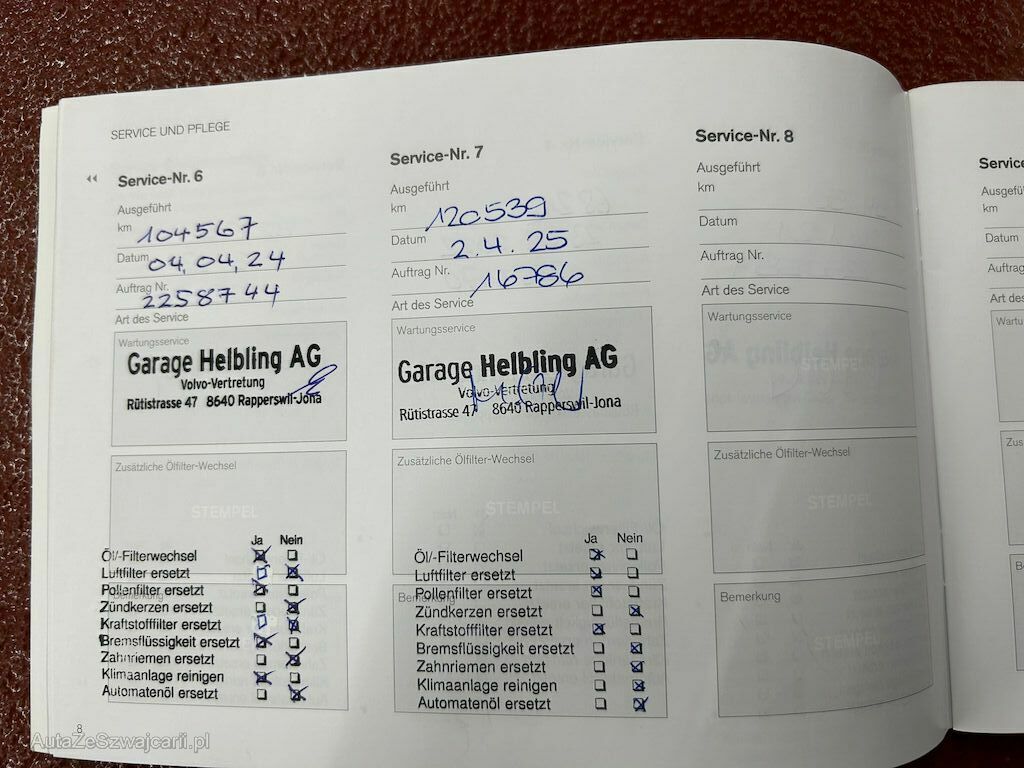 SERVICE UND PFLEGE
Service-Nr. 6
Ausgeführt
km 104567
Datum 04.04.24
Auftrag Nr. 2258744
Art des Service
Wartungsservice
Garage Helbling AG
Volvo-Vertretung
Rütistrasse 47 8640 Rapperswil-Jona
Zusätzliche Ölfilter-Wechsel
STEMPEL
Ja Nein
Öl/-Filterwechsel
Luftfilter ersetzt
Pollenfilter ersetzt
Zündkerzen ersetzt
Kraftstofffilter ersetzt
Bremsflüssigkeit ersetzt
Zahnriemen ersetzt
Klimaanlage reinigen
Automatenöl ersetzt
8
Service-Nr. 7
Ausgeführt
km 120539
Datum 2.4.25
Auftrag Nr. 16786
Art des Service
Wartungsservice
Garage Helbling AG
Volvo-Vertretung
Rütistrasse 47 8640 Rapperswil-Jona
Zusätzliche Ölfilter-Wechsel
STEMPEL
Ja Nein
Öl/-Filterwechsel
Luftfilter ersetzt
Pollenfilter ersetzt
Bemerkung
Zündkerzen ersetzt
Kraftstofffilter ersetzt
Bremsflüssigkeit ersetzt
Zahnriemen ersetzt
Klimaanlage reinigen
Automatenöl ersetzt
Service-Nr. 8
Ausgeführt
km
Datum
Auftrag Nr.
Art des Service
Wartungsservice
STEMPEL
Zusätzliche Ölfilter-Wechsel
STEMPEL
Bemerkung
STEMPEL
Service
Ausgefü
km
Datum
Auftrag
Art des
Wartu
Zus
B
AutaZeSzwajcarii.pl